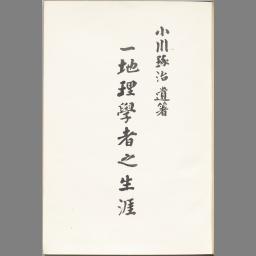 小川琢治遺著
一地理學者之生涯